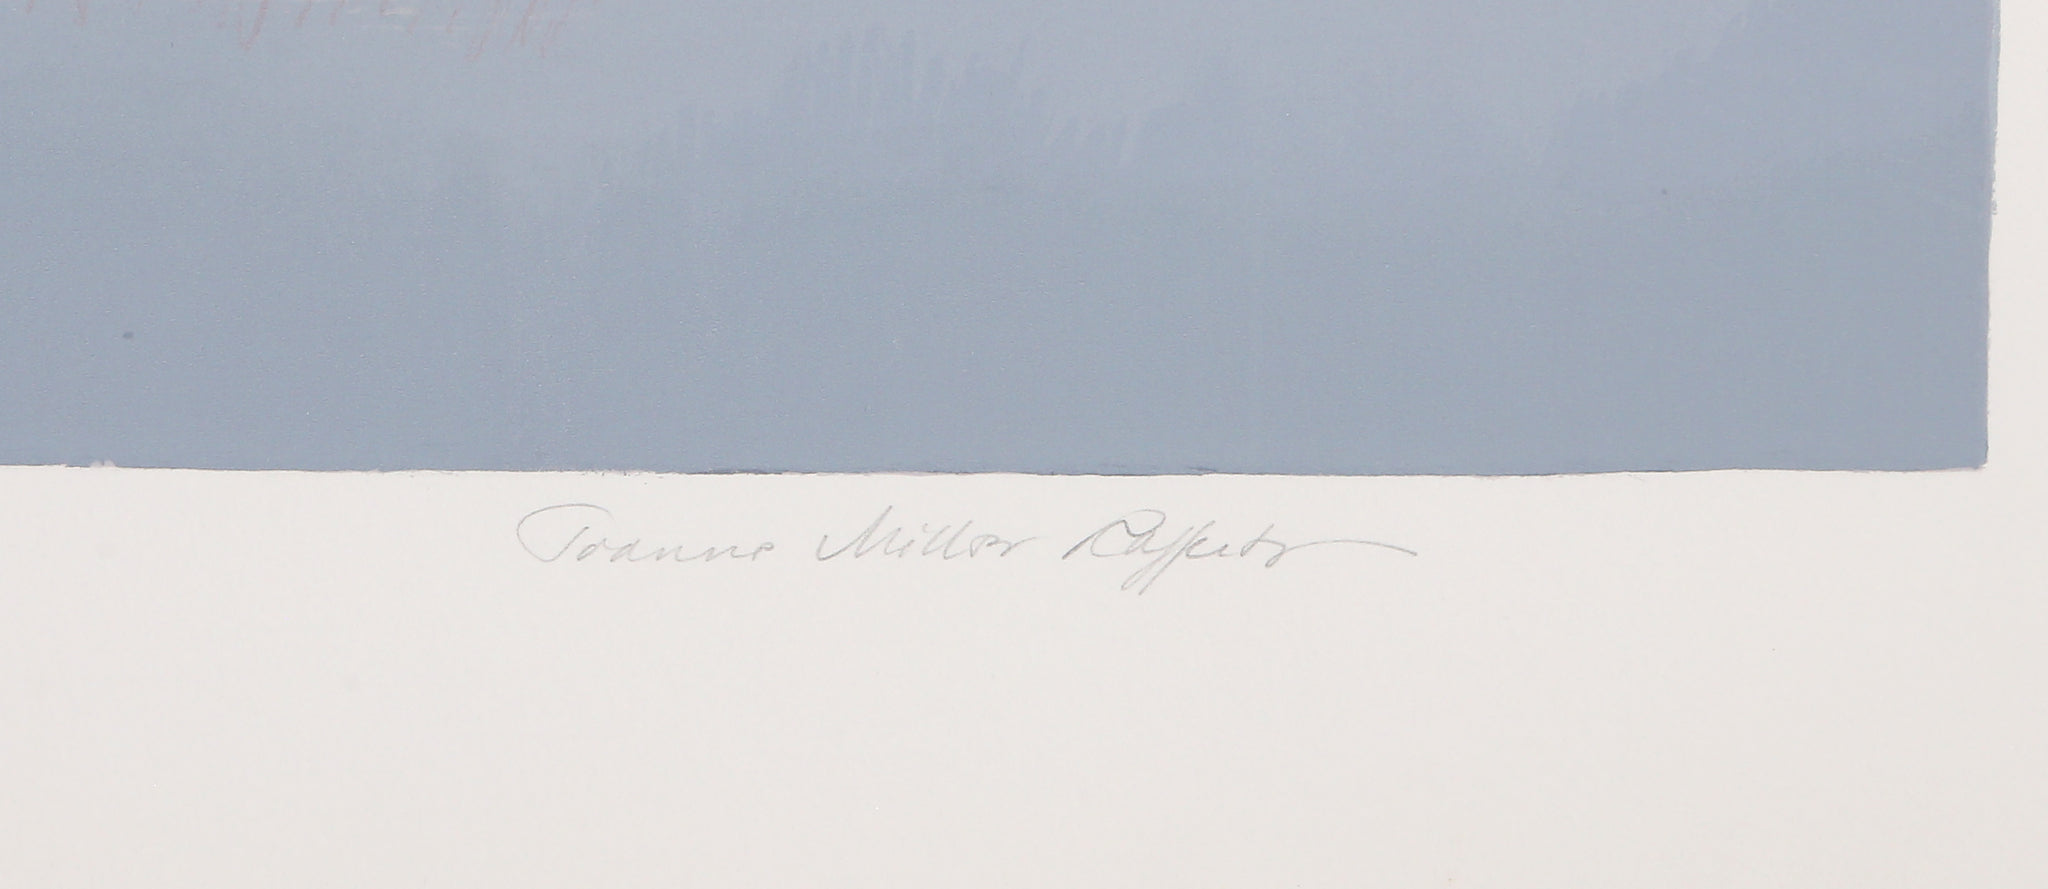 Joanne Miller Rafferty